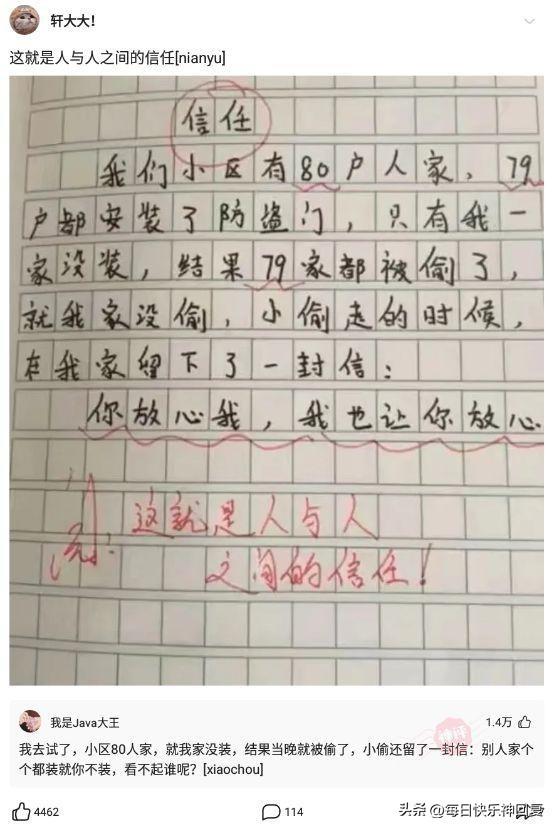 轩大大！
这就是人与人之间的信任[nianyu]
信任
我们小区有80户人家，79
户都安装了防盗门，只有我一
家没装，结果79家都被偷了，
就我家没偷，小偷走的时候，
在我家留下了一封信：
你放心我，我也让你放心.
这就是人与人
之间的信任！
我是Java大王
神评
1.4万
我去试了，小区80人家，就我家没装，结果当晚就被偷了，小偷还留了一封信：别人家个
个都装就你不装，看不起谁呢？[xiaochou]
4462
114
头条@每日快乐神回复